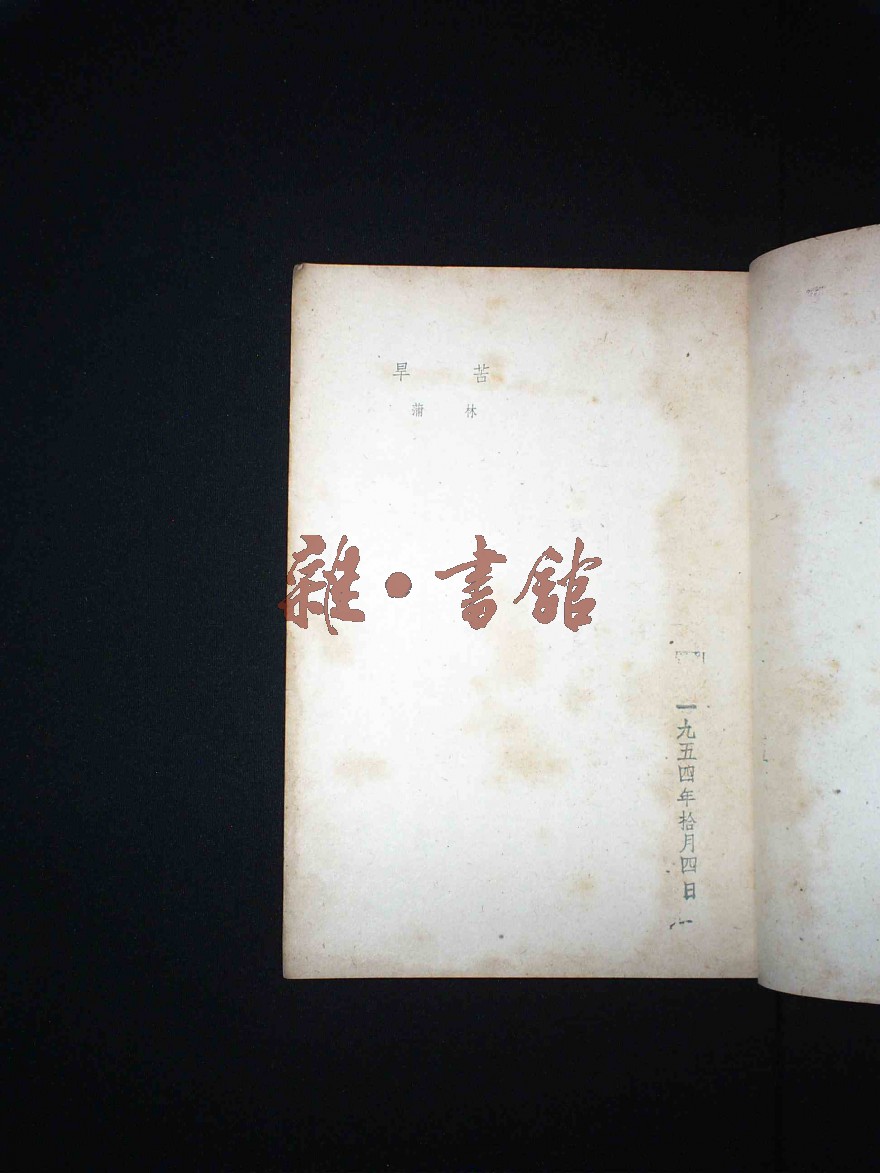 苦旱
林蒲
雜·書館
一九五四年拾月四日